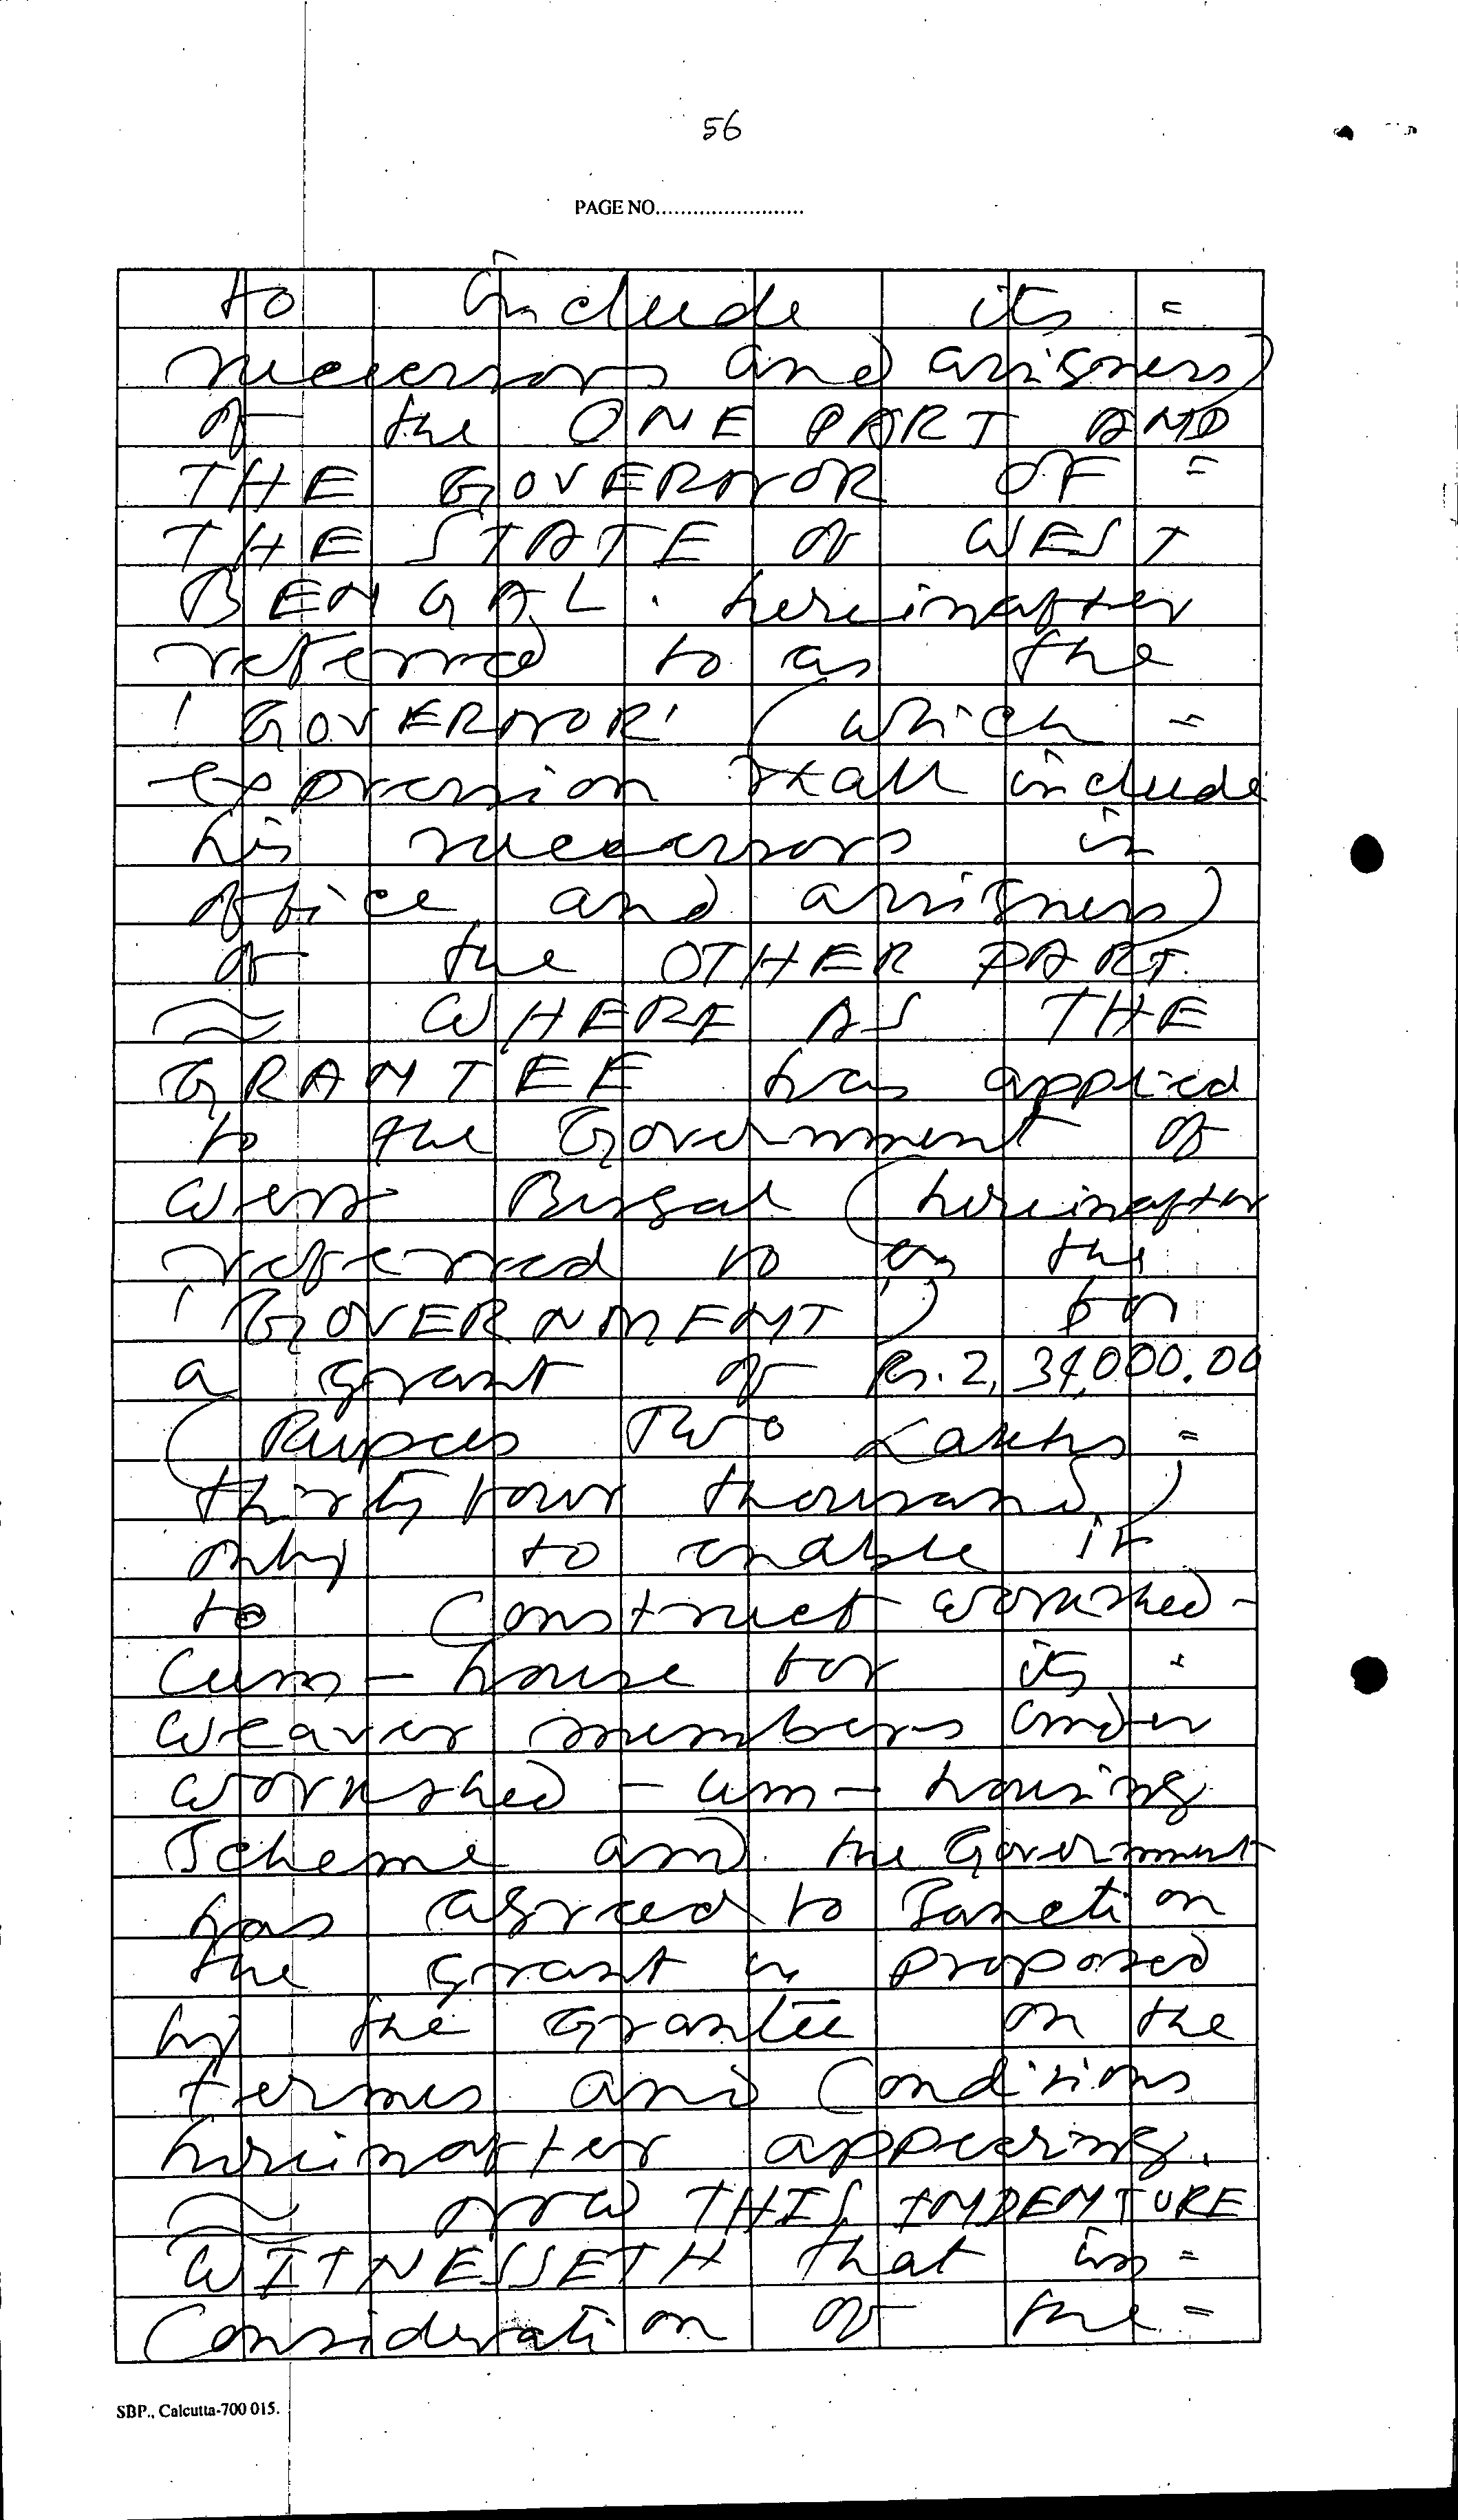 56
PAGE NO........................
to include its =
successors and assignees)
of the ONE PART AND
THE GOVERNOR OF =
THE STATE of WEST
BENGAL. hereinafter
referred to as the
'GOVERNOR' (which =
expression shall include
his successors in
office and assignees)
of the OTHER PART.
≈ WHEREAS THE
GRANTEE has applied
to the Government of
West Bengal (hereinafter
referred to as the
'GOVERNMENT') for
a grant of Rs. 2,34,000.00
(Rupees Two Lakhs =
thirty four thousand)
only to enable it
to Construct workshed-
Cum - house for its =
weaver members under
workshed - cum - housing
Scheme and the Government
has agreed to Sanction
the grant as proposed
by the Grantee on the
terms and Conditions
hereinafter appearing.
≈ NOW THIS INDENTURE
WITNESSETH that in =
Consideration of the =
SBP., Calcutta-700 015.